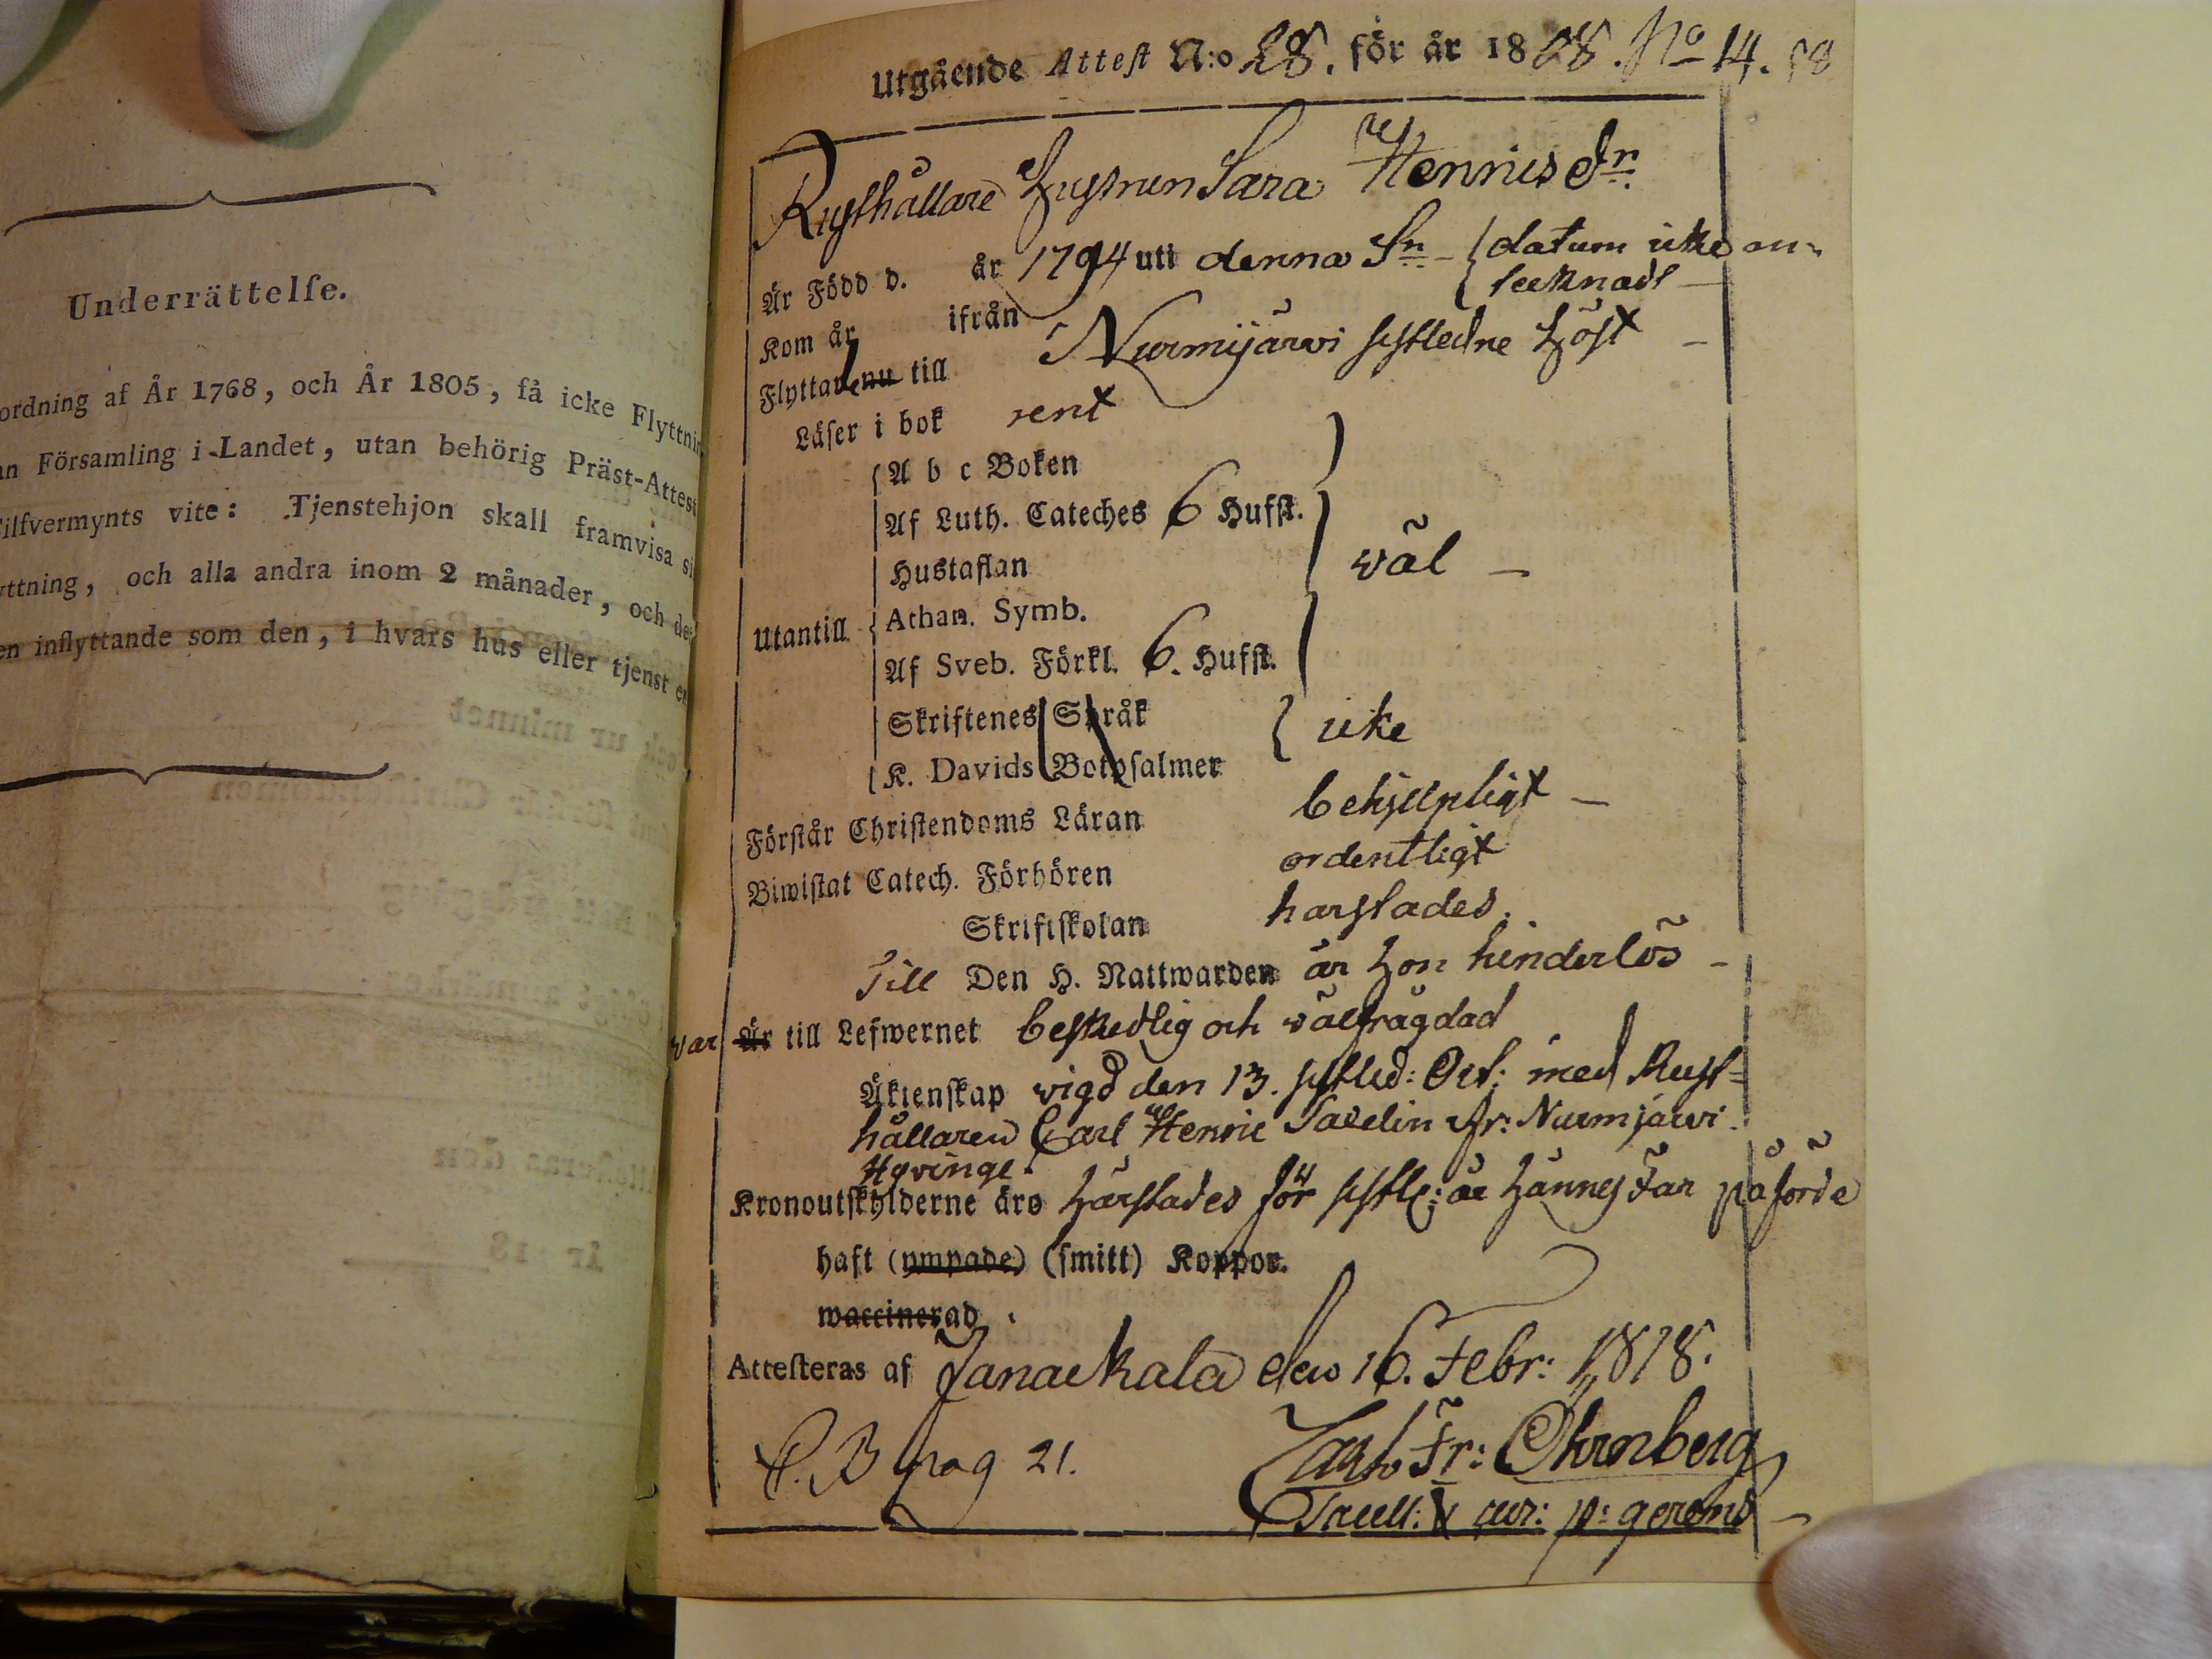 Underrättelse.
ordning af År 1768, och År 1805, få icke Flyttnin
an Församling i Landet, utan behörig Präst-Attest
ilfvermynts vite: Tjenstehjon skall framvisa si
yttning, och alla andra inom 2 månader, och de
en inflyttande som den, i hvars hus eller tjenst e
Utgående Attest N:o 28. för år 1818. No 14.
Rusthållare Hustrun Sara Henricsdr
Är Född d. år 1794 uti denna Sn datum icke an-
tecknadt
Kom år ifrån
Flyttade nu till Nurmijärvi sistledne Höst
Läser i bok rent
A b c Boken
Af Luth. Cateches 6 Hufst.
Hustaflan
wäl
Utantill
Athan. Symb.
Af Sveb. Förkl. 6. Hufst.
Skriftenes Språk
icke
K. Davids Botpsalmer
Förstår Christendoms Läran behjelpligt
Biwistat Catech. Förhören ordentligt
Skriftskolan harstädes.
Till Den H. Nattwarden är hon hinderlös
var Är till Lefwernet beskedlig och wälfrägdad
Äktenskap wigd den 13. sistled: Oct: med Rust=
hållaren Carl Henric Savelin fr: Nurmjärvi
Hyvinge.
Kronoutskylderne äro härstädes för sistl: år hännes Far påförde
haft (ympade) (smitt) Koppor.
waccinerad
Attesteras af Janackala den 16. Febr: 1818.
C. B pag 21.
Carl Fr: Öhrnberg
Sacell: cur: p: gerens